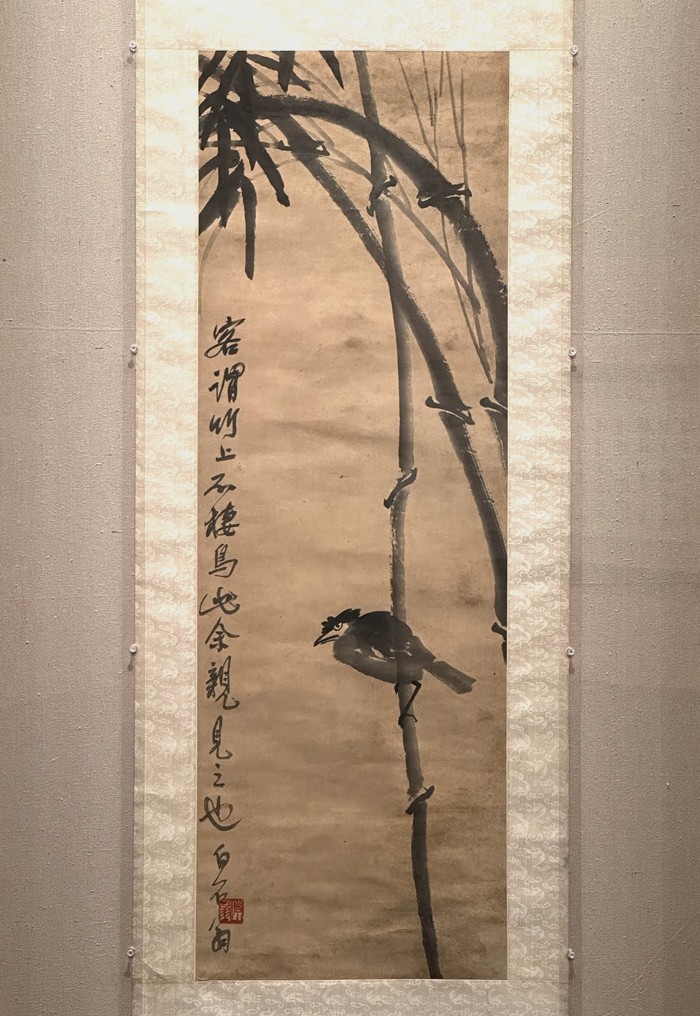 客謂竹上不棲鳥此余親見之也白石翁